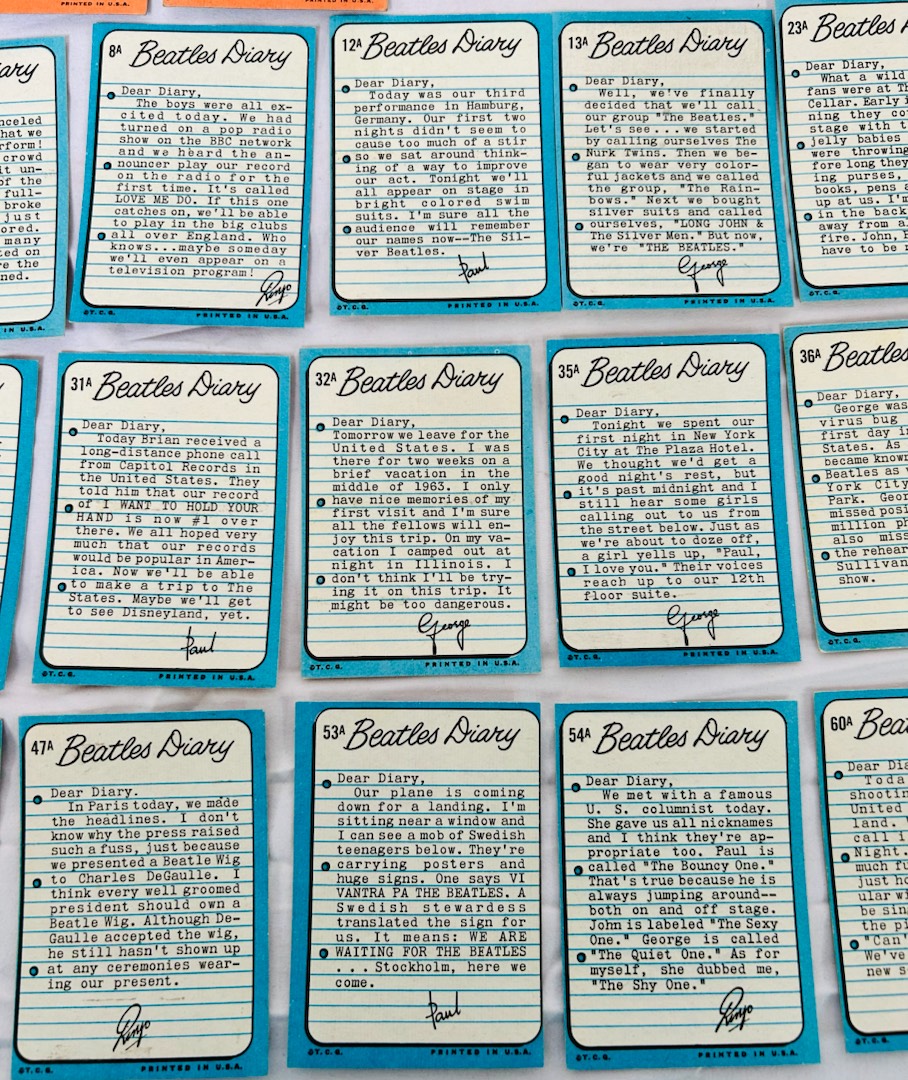 PRINTED IN U.S.A.
PRINTED IN U.S.A.
ary
nceled
hat we
rform!
crowd
it un-
of the
full-
broke
just
ored.
many
ted on
re the
ned.
IN U.S.A.
8A Beatles Diary
Dear Diary,
The boys were all ex-
cited today. We had
turned on a pop radio
show on the BBC network
and we heard the an-
nouncer play our record
on the radio for he
first time. It's called
LOVE ME DO. If this one
catches on, we'll be able
to play in the big clubs
all over England. Who
knows...maybe someday
we'll even appear on a
television program!
Ringo
©T.C.G. PRINTED IN U.S.A.
12A Beatles Diary
Dear Diary,
Today was our third
performance in Hamburg,
Germany. Our first two
nights didn't seem to
cause too much of a stir
so we sat around think-
ing of a way to improve
our act. Tonight we'll
all appear on stage in
bright colored swim
suits. I'm sure all the
audience will remember
our names now--The Sil-
ver Beatles.
Paul
©T.C.G. PRINTED IN U.S.A.
13A Beatles Diary
Dear Diary,
Well, we've finally
decided that we'll call
our group "The Beatles."
Let's see...we started
by calling ourselves The
Nurk Twins. Then we be-
gan to wear very color-
ful jackets and we called
the group, "The Rain-
bows." Next we bought
silver suits and called
ourselves, "LONG JOHN &
The Silver Men." But now,
we're "THE BEATLES."
George
©T.C.G. PRINTED IN U.S.A.
23A Beatles
Dear Diary,
What a wild
fans were at Th
Cellar. Early i
ning they co
stage with t
jelly babies
were throwing
fore long they
ing purses,
books, pens a
up at us. I'm
in the back
away from al
fire. John, P
have to be m
©T.C.G.
31A Beatles Diary
Dear Diary,
Today Brian received a
long-distance phone call
from Capitol Records in
the United States. They
told him that our record
of I WANT TO HOLD YOUR
HAND is now #1 over
there. We all hoped very
much that our records
would be popular in Amer-
ica. Now we'll be able
to make a trip to The
States. Maybe we'll get
to see Disneyland, yet.
Paul
©T.C.G. PRINTED IN U.S.A.
32A Beatles Diary
Dear Diary,
Tomorrow we leave for the
United States. I was
there for two weeks on a
brief vacation in the
middle of 1963. I only
have nice memories of my
first visit and I'm sure
all the fellows will en-
joy this trip. On my va-
cation I camped out at
night in Illinois. I
don't think I'll be try-
ing it on this trip. It
might be too dangerous.
George
©T.C.G. PRINTED IN U.S.A.
35A Beatles Diary
Dear Diary,
Tonight we spent our
first night in New York
City at The Plaza Hotel.
We thought we'd get a
good night's rest, but
it's past midnight and I
still hear some girls
calling out to us from
the street below. Just as
we're about to doze off,
a girl yells up, "Paul,
I love you." Their voices
reach up to our 12th
floor suite.
George
©T.C.G. PRINTED IN U.S.A.
36A Beatles
Dear Diary,
George was
virus bug
first day i
States. As
became known
Beatles as w
York City
Park. Geor
missed posi
million ph
also miss
the rehear
Sullivan
show.
©T.C.G.
47A Beatles Diary
Dear Diary.
In Paris today, we made
the headlines. I don't
know why the press raised
such a fuss, just because
we presented a Beatle Wig
to Charles DeGaulle. I
think every well groomed
president should own a
Beatle Wig. Although De-
Gaulle accepted the wig,
he still hasn't shown up
at any ceremonies wear-
ing our present.
Ringo
©T.C.G. PRINTED IN U.S.A.
53A Beatles Diary
Dear Diary,
Our plane is coming
down for a landing. I'm
sitting near a window and
I can see a mob of Swedish
teenagers below. They're
carrying posters and
huge signs. One says VI
VANTRA PA THE BEATLES. A
Swedish stewardess
translated the sign for
us. It means: WE ARE
WAITING FOR THE BEATLES
... Stockholm, here we
come.
Paul
©T.C.G. PRINTED IN U.S.A.
54A Beatles Diary
Dear Diary,
We met with a famous
U. S. columnist today.
She gave us all nicknames
and I think they're ap-
propriate too. Paul is
called "The Bouncy One."
That's true because he is
always jumping around--
both on and off stage.
John is labeled "The Sexy
One." George is called
"The Quiet One." As for
myself, she dubbed me,
"The Shy One."
Ringo
©T.C.G. PRINTED IN U.S.A.
60A Bea
Dear Dia
Toda
shootin
United
land. W
call i
Night.
much fu
just ho
ular wi
be sin
the pi
"Can'
We've
new s
©T.C.G.